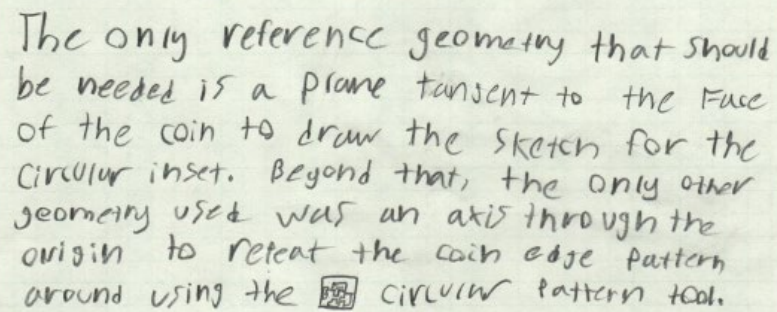 The only reference geometry that should
be needed is a plane tangent to the Face
of the coin to draw the sketch for the
circular inset. Beyond that, the only other
geometry used was an axis through the
origin to repeat the coin edge pattern
around using the circular pattern tool.